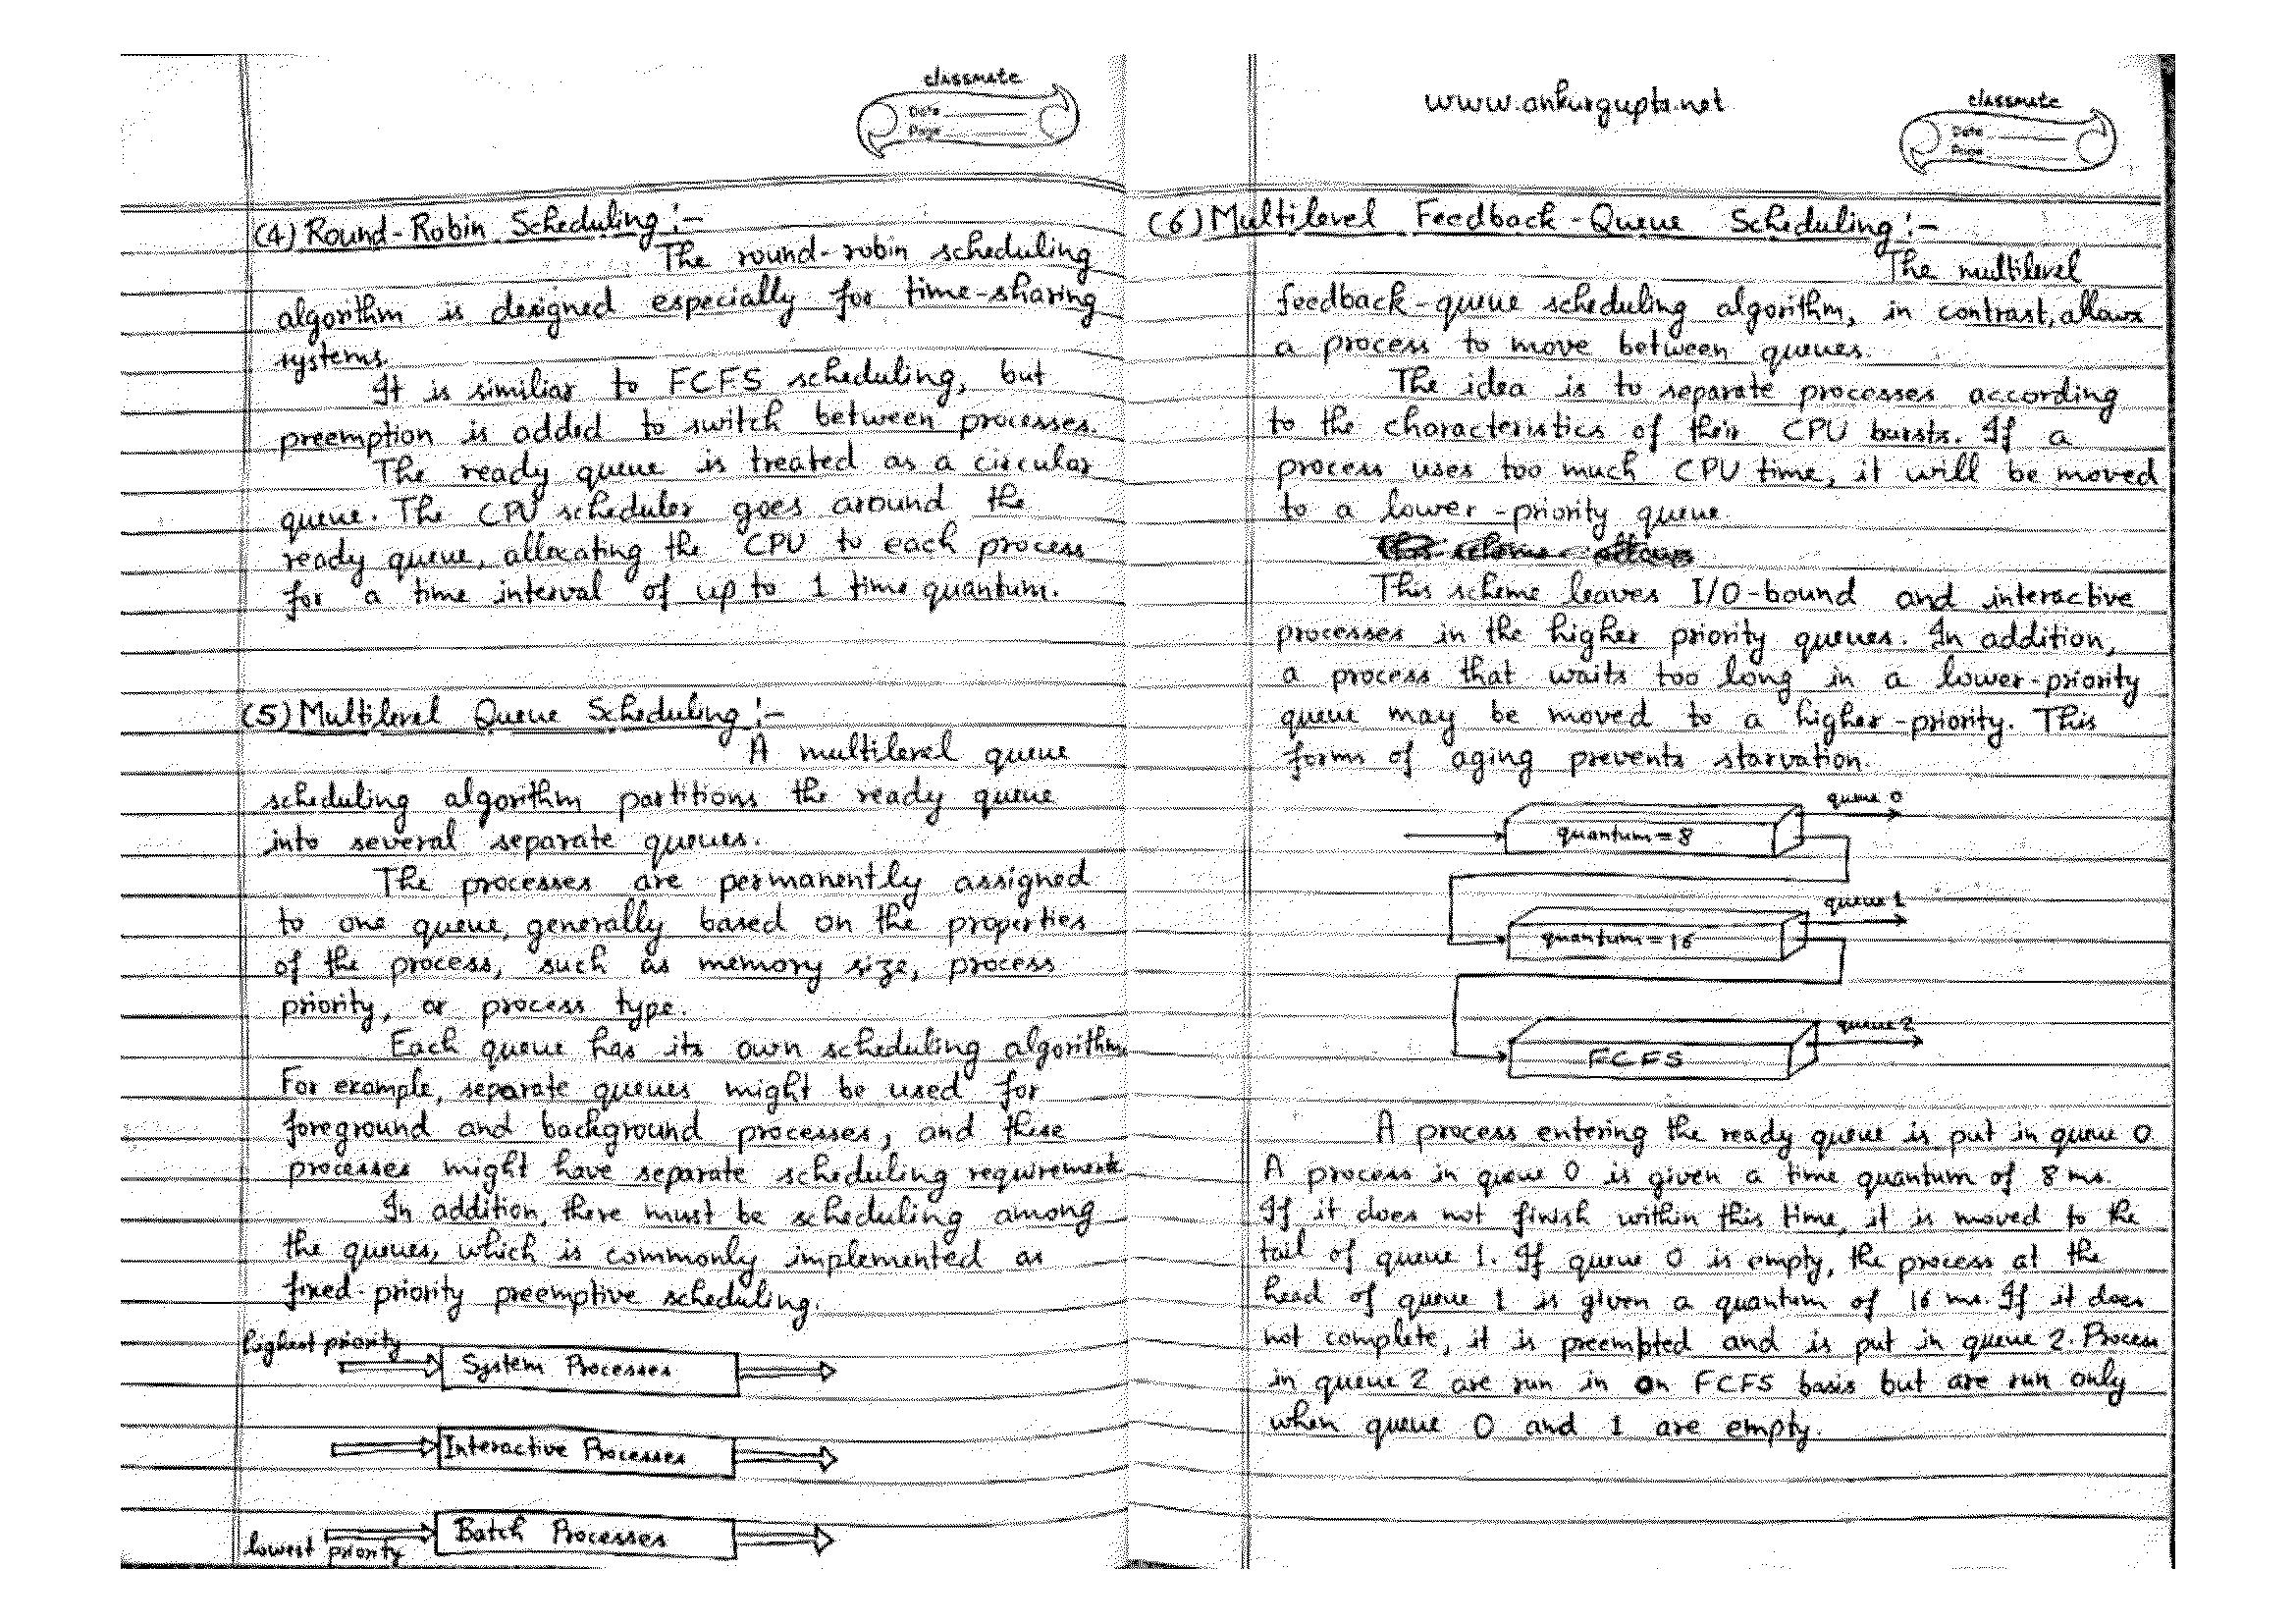 classmate
Date
Page
(4) Round-Robin Scheduling :-
The round-robin scheduling
algorithm is designed especially for time-sharing
systems.
It is similiar to FCFS scheduling, but
preemption is added to switch between processes.
The ready queue is treated as a circular
queue. The CPU scheduler goes around the
ready queue, allocating the CPU to each process
for a time interval of up to 1 time quantum.
(5) Multilevel Queue Scheduling :-
A multilevel queue
scheduling algorithm partitions the ready queue
into several separate queues.
The processes are permanently assigned
to one queue, generally based on the properties
of the process, such as memory size, process
priority, or process type.
Each queue has its own scheduling algorithm.
For example, separate queues might be used for
foreground and background processes, and these
processes might have separate scheduling requirements
In addition, there must be scheduling among
the queues, which is commonly implemented as
fixed-priority preemptive scheduling.
highest priority
System Processes
Interactive Processes
Batch Processes
lowest priority
www.ankurgupta.net
classmate
Date
Page
(6) Multilevel Feedback-Queue Scheduling :-
The multilevel
feedback-queue scheduling algorithm, in contrast, allows
a process to move between queues.
The idea is to separate processes according
to the characteristics of their CPU bursts. If a
process uses too much CPU time, it will be moved
to a lower-priority queue.
This scheme leaves I/O-bound and interactive
processes in the higher priority queues. In addition,
a process that waits too long in a lower-priority
queue may be moved to a higher-priority. This
forms of aging prevents starvation.
queue 0
quantum = 8
queue 1
quantum = 16
queue 2
FCFS
A process entering the ready queue is put in queue 0
A process in queue 0 is given a time quantum of 8 ms.
If it does not finish within this time, it is moved to the
tail of queue 1. If queue 0 is empty, the process at the
head of queue 1 is given a quantum of 16 ms. If it does
not complete, it is preempted and is put in queue 2. Process
in queue 2 are run in on FCFS basis but are run only
when queue 0 and 1 are empty.